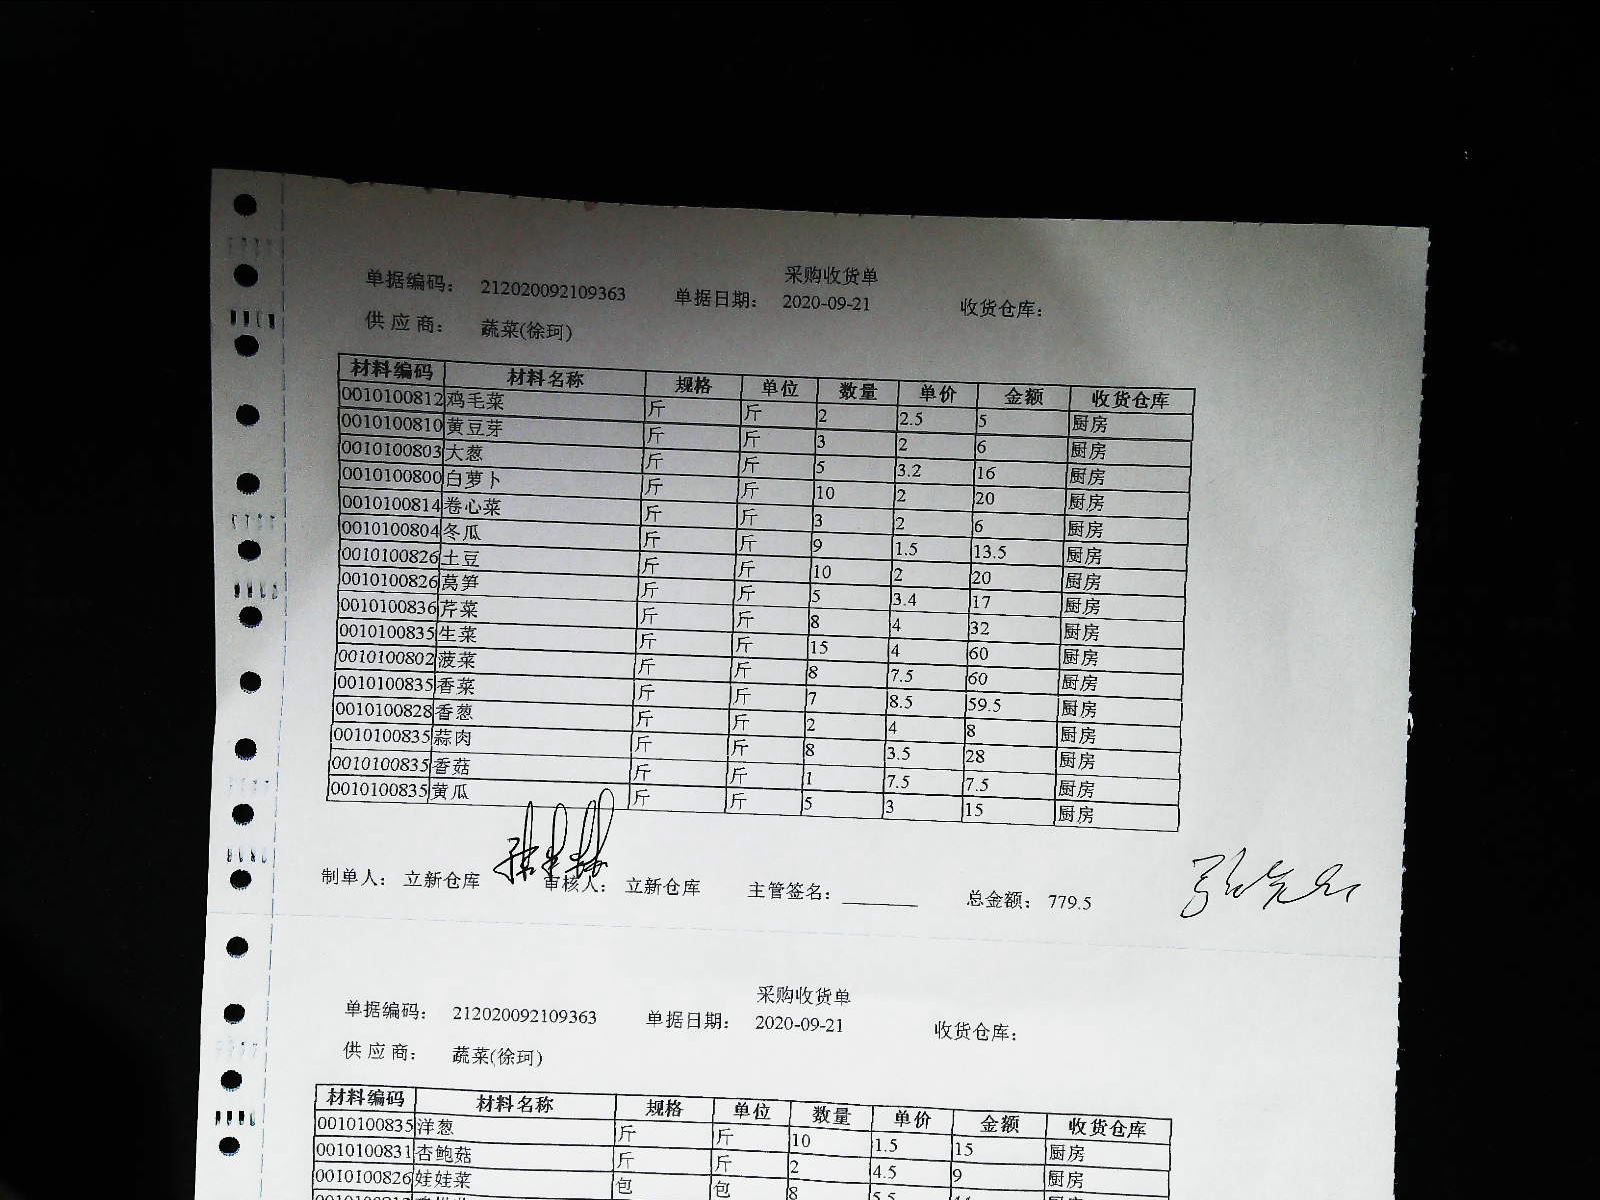 采购收货单
单据编码： 212020092109363 单据日期： 2020-09-21 收货仓库：
供 应 商： 蔬菜(徐珂)
材料编码 材料名称 规格 单位 数量 单价 金额 收货仓库
0010100812 鸡毛菜 斤 斤 2 2.5 5 厨房
0010100810 黄豆芽 斤 斤 3 2 6 厨房
0010100803 大葱 斤 斤 5 3.2 16 厨房
0010100800 白萝卜 斤 斤 10 2 20 厨房
0010100814 卷心菜 斤 斤 3 2 6 厨房
0010100804 冬瓜 斤 斤 9 1.5 13.5 厨房
0010100826 土豆 斤 斤 10 2 20 厨房
0010100826 莴笋 斤 斤 5 3.4 17 厨房
0010100836 芹菜 斤 斤 8 4 32 厨房
0010100835 生菜 斤 斤 15 4 60 厨房
0010100802 菠菜 斤 斤 8 7.5 60 厨房
0010100835 香菜 斤 斤 7 8.5 59.5 厨房
0010100828 香葱 斤 斤 2 4 8 厨房
0010100835 蒜肉 斤 斤 8 3.5 28 厨房
0010100835 香菇 斤 斤 1 7.5 7.5 厨房
0010100835 黄瓜 斤 斤 5 3 15 厨房
制单人： 立新仓库 审核人： 立新仓库 主管签名： 总金额： 779.5
采购收货单
单据编码： 212020092109363 单据日期： 2020-09-21 收货仓库：
供 应 商： 蔬菜(徐珂)
材料编码 材料名称 规格 单位 数量 单价 金额 收货仓库
0010100835 洋葱 斤 斤 10 1.5 15 厨房
0010100831 杏鲍菇 斤 斤 2 4.5 9 厨房
0010100826 娃娃菜 包 包 8